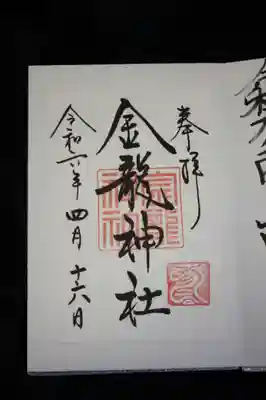 奉拝
金龍神社
令和六年四月十六日